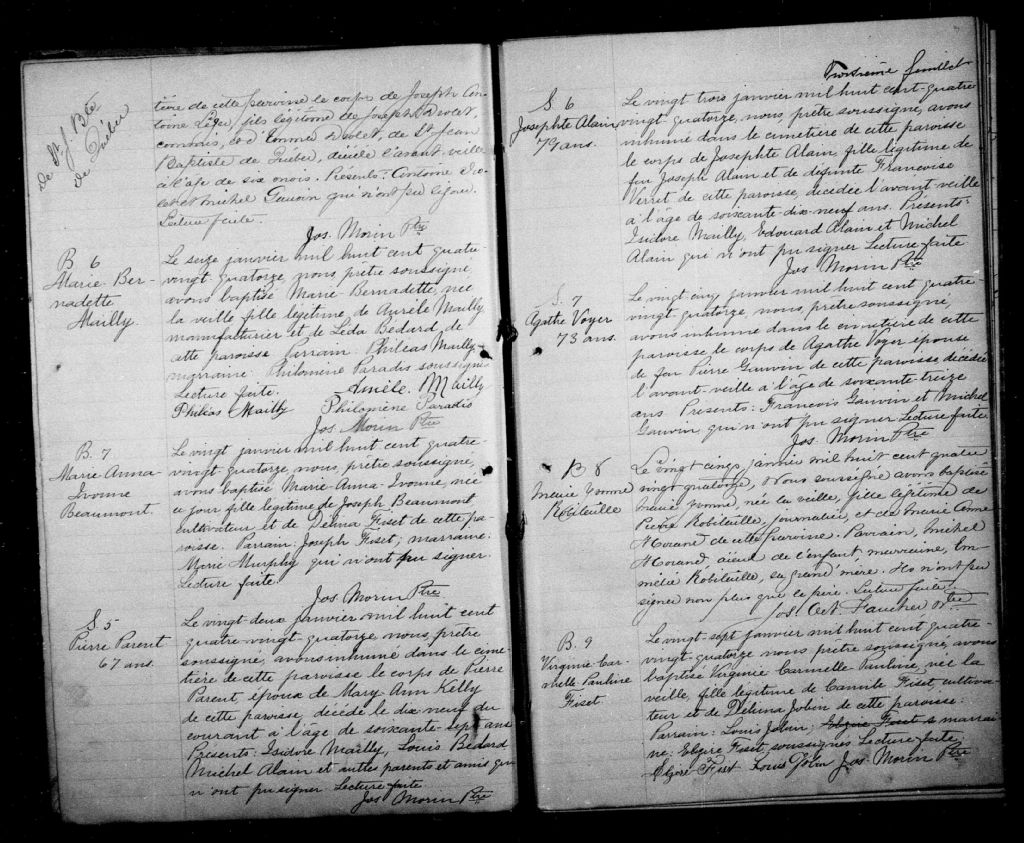 de St. J. Bte
de Québec
tière de cette paroisse le corps de Joseph An-
toine Léger, fils légitime de Joseph Drolet,
commis, et d'Emma Drolet, de St Jean
Baptiste de Québec, décédé l'avant-veille
à l'âge de six mois. Présents: Antoine Dro-
let et Michel Gauvin qui n'ont pu signer.
Lecture faite.
Jos. Morin Ptre
B 6
Marie Ber-
nadette
Mailly.
Le seize janvier mil huit cent quatre
vingt quatorze, nous, prêtre soussigné,
avons baptisé Marie-Bernadette, née
la veille fille légitime de Aurèle Mailly
manufacturier et de Léda Bédard de
cette paroisse Parrain. Philéas Mailly,
marraine: Philomène Paradis soussignés
Lecture faite. Aurèle. Mailly
Philéas Mailly Philomène Paradis
Jos Morin Ptre
B. 7
Marie-Anna
Ivonne
Beaumont.
Le vingt janvier mil huit cent quatre-
vingt quatorze, nous, prêtre soussigné,
avons baptisé Marie-Anna-Ivonne, née
ce jour fille légitime de Joseph Beaumont
cultivateur et de Delina Fiset de cette pa-
roisse. Parrain: Joseph Fiset; marraine:
Marie Murphy qui n'ont pu signer.
Lecture faite.
Jos Morin Ptre
S 5
Pierre Parent
67 ans.
Le vingt deux janvier mil huit cent
quatre vingt quatorze nous, prêtre
soussigné, avons inhumé dans le cime-
tière de cette paroisse le corps de Pierre
Parent, époux de Mary Ann Kelly
de cette paroisse, décédé le dix neuf du
courant à l'âge de soixante-sept ans
Présents: Isidore Mailly, Louis Bédard
Michel Alain et autres parents et amis qui
n'ont pu signer Lecture faite
Jos Morin Ptre
Troisième feuillet
S 6
Josephte Alain
79 ans.
Le vingt trois janvier mil huit cent-quatre
vingt quatorze, nous, prêtre soussigné, avons
inhumé dans le cimetière de cette paroisse
le corps de Josephte Alain, fille légitime de
feu Joseph Alain et de defunte Francoise
Verret de cette paroisse, décédée l'avant-veille
à l'âge de soixante-dix-neuf ans. Présents:
Isidore Mailly, Edouard Alain et Michel
Alain qui n'ont pu signer Lecture faite
Jos Morin Ptre
S. 7
Agathe Voyer
73 ans.
Le vingt cinq janvier mil huit cent quatre-
vingt quatorze, nous, prêtre soussigné,
avons inhumé dans le cimetière de cette
paroisse le corps de Agathe Voyer épouse
de feu Pierre Gauvin de cette paroisse, décédée
l'avant-veille à l'âge de soixante-treize
ans Présents: Francois Gauvin et Michel
Gauvin, qui n'ont pu signer Lecture faite
Jos Morin Ptre
B 8
Marie Yvonne
Robitaille
Le vingt cinq janvier mil huit cent quatre
vingt quatorze, Nous soussigné avons baptisé
Marie Yvonne, née la veille, fille légitime de
Pierre Robitaille, journalier, et de Marie Anne
Morand de cette paroisse. Parrain, Michel
Morand, aïeul de l'enfant, marraine, Em-
mélie Robitaille, sa grand'mère. Ils n'ont pu
signer non plus que le père. Lecture faite.
Jos. Oct Faucher Ptre
B. 9
Virginie Car-
melle-Pauline
Fiset
Le vingt-sept janvier mil huit cent quatre-
vingt-quatorze nous prêtre soussigné, avons
baptisé Virginie Carmelle Pauline, née la
veille, fille légitime de Camille Fiset, cultiva-
teur et de Déluna Jobin de cette paroisse:
Parrain: Louis Jobin, Elzire Fiset s marrai-
ne: Elzire Fiset, soussignés Lecture faite;
Elzire Fiset Louis Jobin Jos Morin Ptre